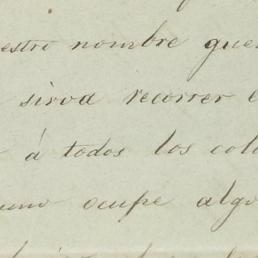 estro nombre que
sirva recorrer e
á todos los col
uno ocupe algo